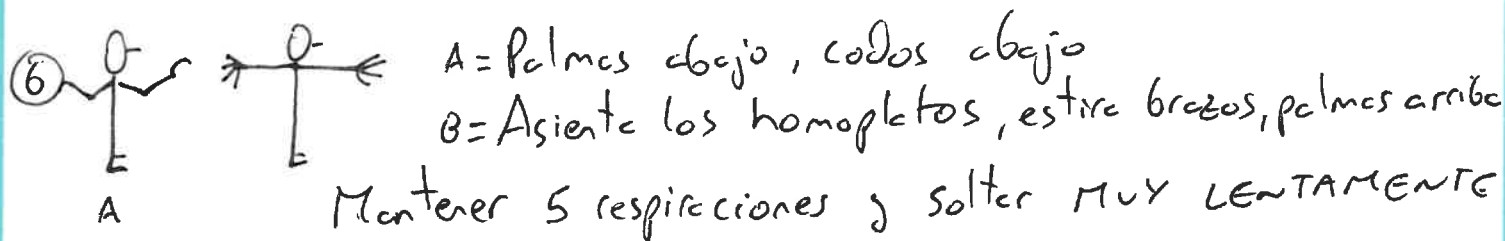 6
A = Palmas abajo, codos abajo
B = Asienta los homoplatos, estira brazos, palmas arriba
Mantener 5 respiraciones y soltar MUY LENTAMENTE
A